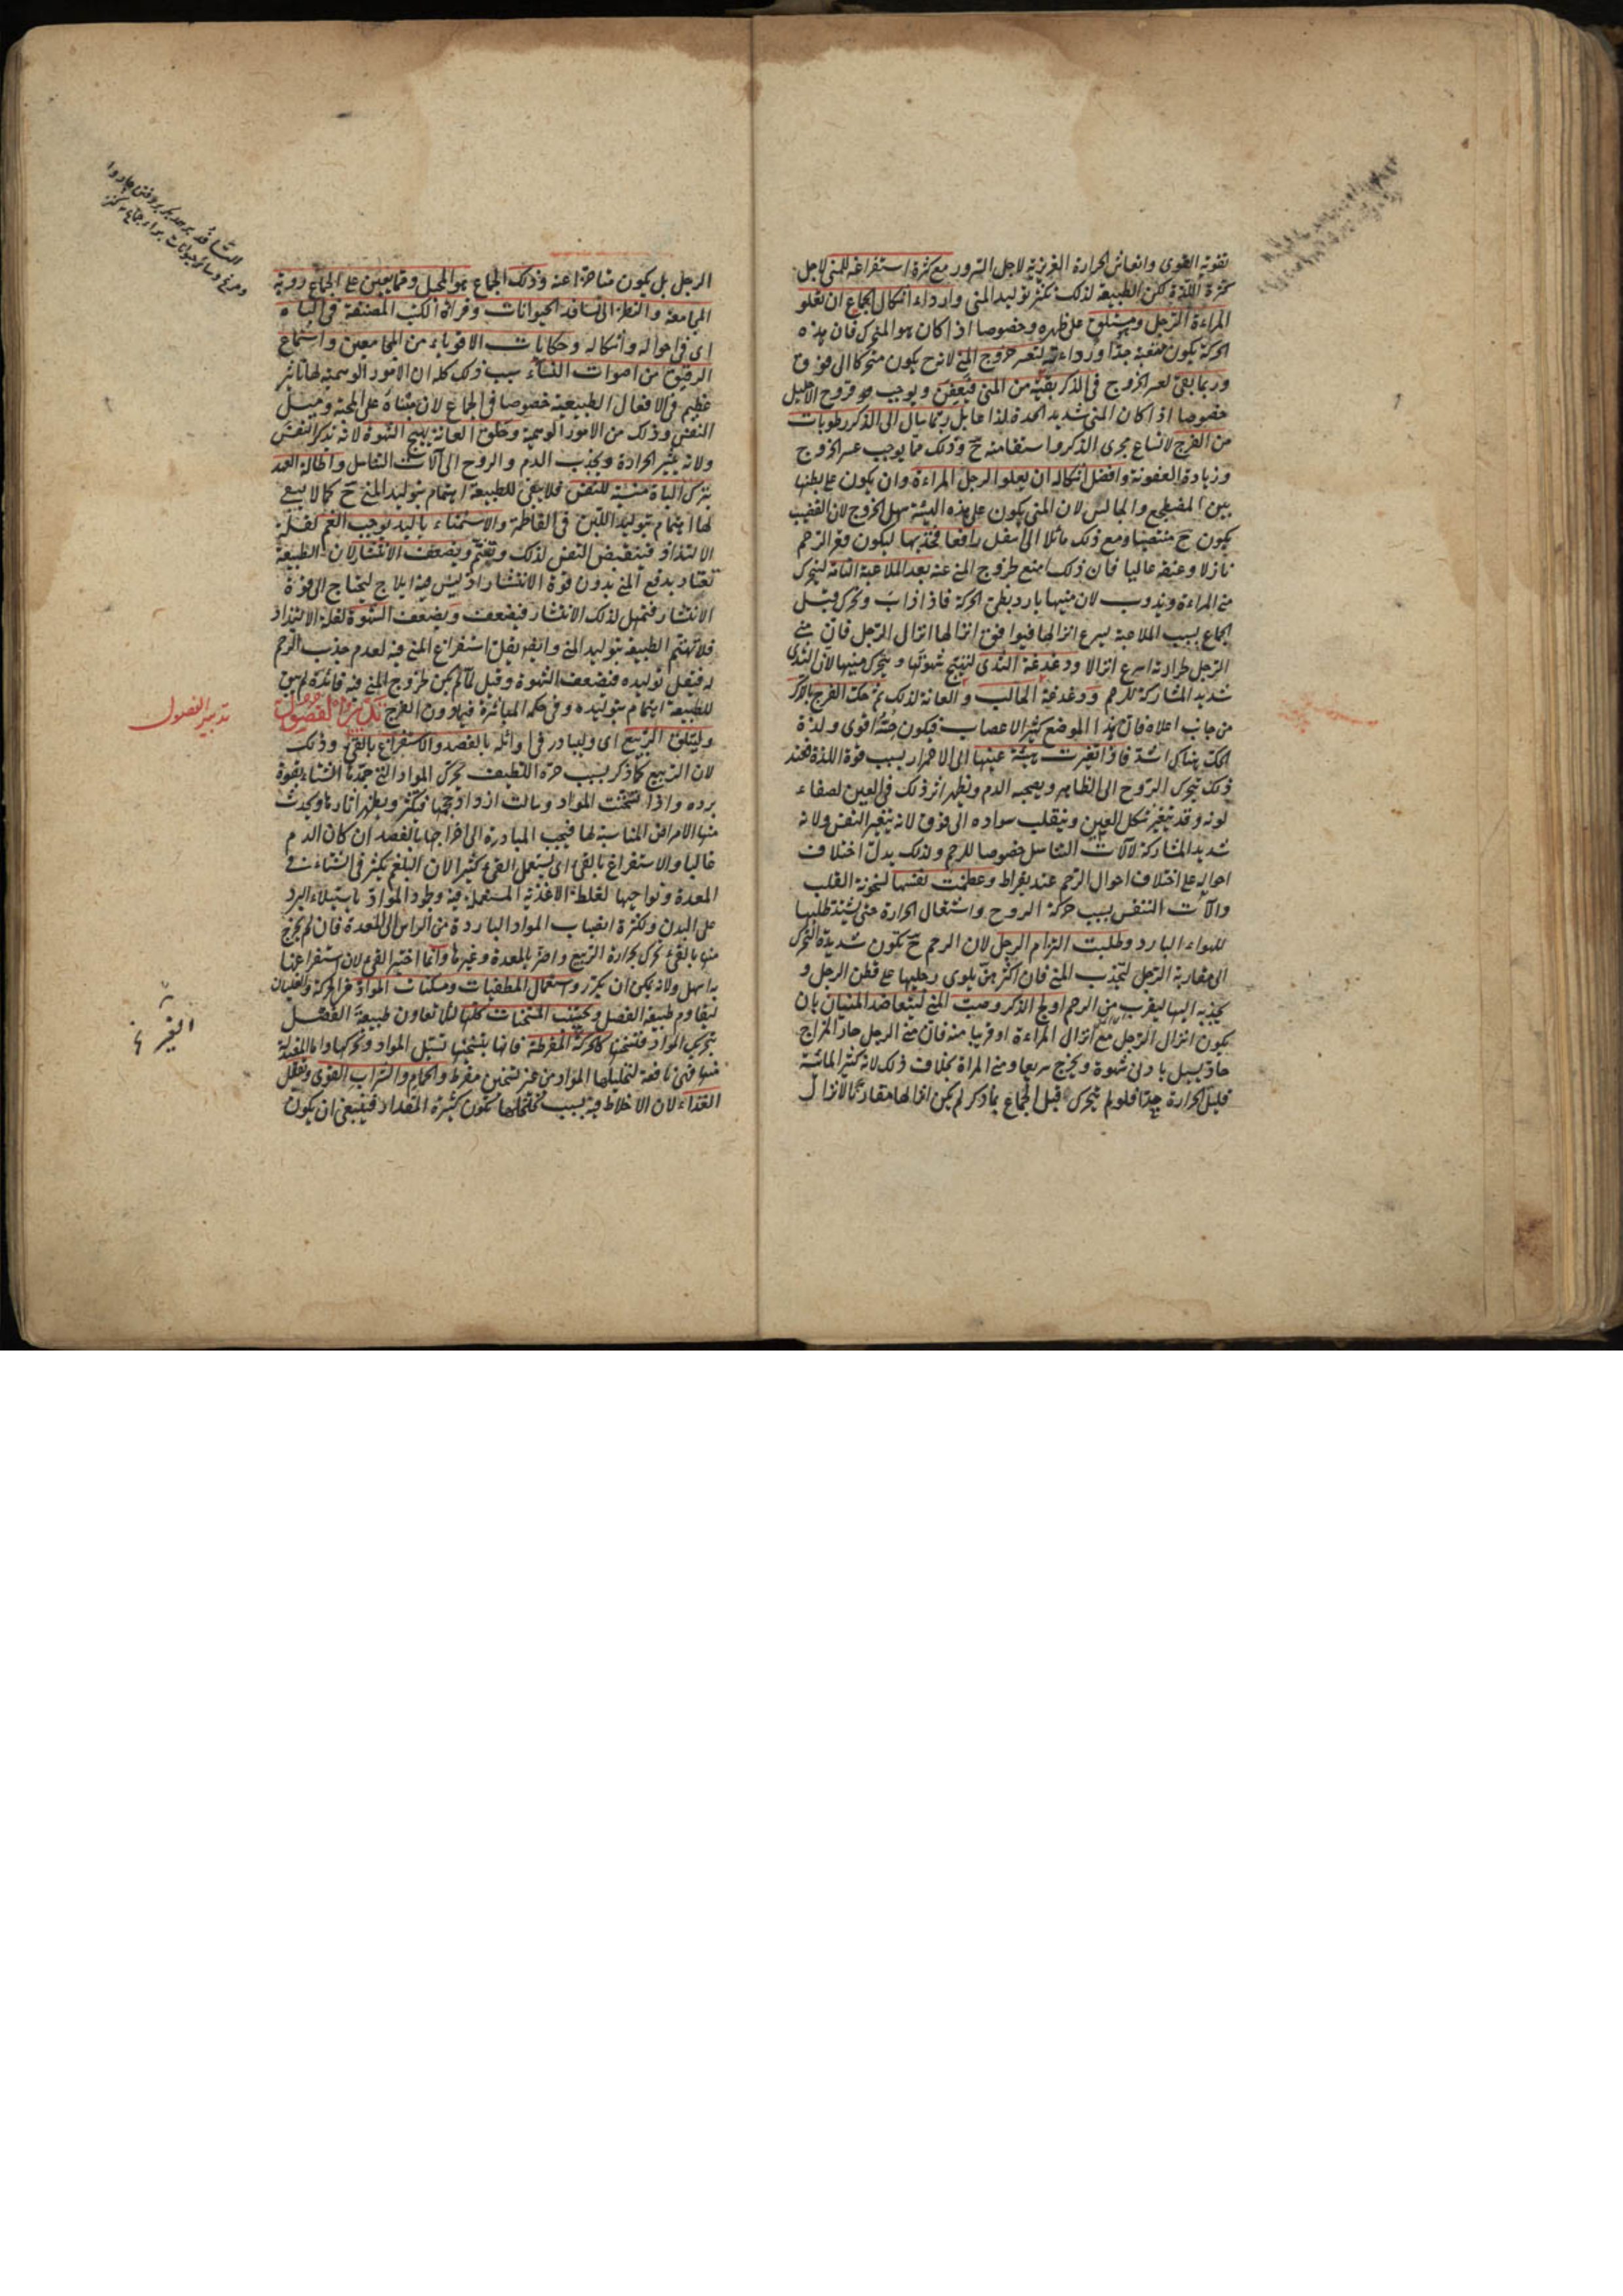 تقوية القوى وانعاش الحرارة الغريزية لاجل السرور مع كثرة استفراغه للمنى لاجل
كثرة اللذة لكن الطبيعة لذلك تكثر توليد المنى واردء اشكال الجماع ان تعلو
المراءة الرجل وهو مستلق على ظهره وخصوصا اذا كان هو المتحرك فان هذه
الحركة يكون متعبة جدا ورداءته لتعسر خروج المنى لانه ح يكون متحركا الى فوق
وربما بقى لعسر الخروج فى الذكر بقية من المنى فيعفن ويوجب قروح الاحليل
خصوصا اذا كان المنى شديد الحدة لذا ربما سال الى الذكر رطوبات
من الفرج لاتساع مجرى الذكر واستقامته ح وذلك مما يوجب عسر الخروج
وزيادة العفونة وافضل اشكاله ان يعلو الرجل المراءة وان يكون على بطنها
بين المضطجع والجالس لان المنى يكون على هذه الهيئة سهل الخروج لان القضيب
يكون ح منتصبا ومع ذلك مائلا الى اسفل رافعا فخذيها ليكون فم الرحم
نازلا وعنقه عاليا فان ذلك امنع لخروج المنى عنه بعد الملاعبة التامة ليتحرك
منى المراءة ويذوب لان منيها بارد بطئ الحركة فاذا ذاب وتحرك قبل
الجماع بسبب الملاعبة يسرع انزالها فيوافق انزالها انزال الرجل فان منى
الرجل لحرارته اسرع انزالا ودغدغة الثدى لتهيج شهوتها ويتحرك منيها لان الثدى
شديد المشاركة للرحم ودغدغة الحالب والعانة لذلك ثم حك الفرج بالذكر
من جانب اعلاه فان هذا الموضع كثير الاعصاب فيكون حسه اقوى ولذة
الحك هناك اشد فاذا تغيرت هيئة عينيها الى الاحمرار بسبب قوة اللذة فعند
ذلك يتحرك الروح الى الظاهر ويصحبه الدم ويظهر اثر ذلك فى العين لصفاء
لونه وقد يتغير شكل العين وينقلب سواده الى فوق لانه يتغير النفس ولانه
شديد المشاركة لآلات التناسل خصوصا للرحم ولذلك يدل اختلاف
احواله على اختلاف احوال الرحم عند بقراط وعظمت نفسها لسخونة القلب
وآلات التنفس بسبب حركة الروح واشتعال الحرارة حتى يشتد طلبها
للهواء البارد وطلبت التزام الرجل لان الرحم ح يكون شديدة التحرك
الى مقاربة الرجل لتجذب المنى فان اكثرهن يلوى رجليها على قطن الرجل و
يجذبه اليها ليقرب من الرحم اولج الذكر وصب المنى ليتعاضد المنيان بان
يكون انزال الرجل مع انزال المراءة او قريبا منه فان منى الرجل حار المزاج
حاد يسيل بادنى شهوة ويخرج سريعا ومنى المراة بخلاف ذلك لانه كثير المائية
قليل الحرارة جدا فلو لم يتحرك قبل الجماع بما ذكر لم يكن انزالها مقارنا لانزال
الرجل بل يكون متاخرا عنه وذلك الجماع هو المحبل ومما يعين على الجماع روية
المجامعة والنظر الى تسافد الحيوانات وقراة الكتب المصنفة فى الباه
اى فى احواله واشكاله وحكايات الاقوياء من المجامعين واستماع
الرقيق من اصوات النساء سبب ذلك كله ان الامور الوهمية لها تاثير
عظيم فى الافعال الطبيعية خصوصا فى الجماع لان مبناه على المحبة وميل
النفس وذلك من الامور الوهمية وحلق العانة يهيج الشهوة لانه يذكر النفس
ولانه يثير الحرارة ويجذب الدم والروح الى آلات التناسل واطالة العهد
بترك الباه منسية للنفس فلا يبقى للطبيعة اهتمام بتوليد المنى ح كما لا يبقى
لها اهتمام بتوليد اللبن فى الفاطمة والاستمناء باليد يوجب الغم لقلة
الالتذاذ فينقبض النفس لذلك ويغتم ويضعف الانتشار لان الطبيعة
تعتاد بدفع المنى بدون قوة الانتشار اذ ليس فيه ايلاج ليحتاج الى قوة
الانتشار فتهمل لذلك الانتشار فيضعف ويضعف الشهوة لقلة الالتذاذ
فلا تهتم الطبيعة بتوليد المنى وايضا يقل استفراغ المنى فيه لعدم جذب الرحم
له فيقل توليده فتضعف الشهوة وقيل لما لم يكن لخروج المنى فيه فائدة لم يبق
للطبيعة اهتمام بتوليده وفى حكمه المباشرة فيما دون الفرج تدبير الفصول
وليتلق الربيع اى وليبادر فى اوائله بالفصد والاستفراغ بالقئ وذلك
لان الربيع كما ذكر بسبب حره اللطيف يحرك المواد التى جمدها الشتاء بقوة
برده واذا تسخنت المواد وسالت ازداد حجمها فتكثر ويظهر اثارها ويحدث
منها الامراض المناسبة لها فيجب المبادرة الى اخراجها بالفصد ان كان الدم
غالبا والاستفراغ بالقئ اى يستعمل القئ كثيرا لان البلغم يكثر فى الشتاء فى
المعدة ونواحيها لغلظ الاغذية المستعملة فيه وجمود المواد باستيلاء البرد
على البدن ولكثرة انصباب المواد الباردة من الراس الى المعدة فان لم يخرج
منها بالقئ تحرك بحرارة الربيع واضر بالمعدة وغيرها وانما اختير القئ لان استفراغها
به اسهل ولانه يمكن ان يتكرر واستعمال المطفيات ومسكنات المواد عن الحركة والغليان
ليقاوم طبيعة الفصل ويجتنب المسخنات كلها لئلا تعاون طبيعة الفصل
بتحريك المواد فتسخنها كالحركة المفرطة فانها بتسخينها تسيل المواد وتحركها واما المعتدلة
منها فهى نافعة لتحليلها المواد من غير تسخين مفرط والحمام والشراب القوى وتقليل
الغذاء لان الاخلاط فيه بسبب تخلخلها تكون كثيرة المقدار فينبغى ان يكون
تدبير الفصول